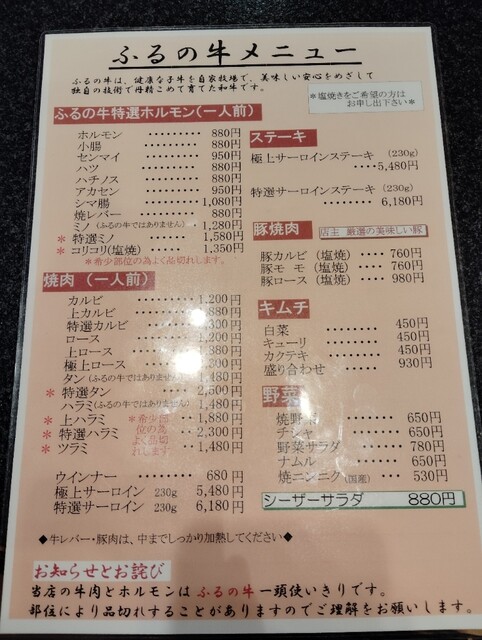 ふるの牛メニュー
ふるの牛は、健康な子牛を自家牧場で、美味しい安心をめざして
独自の技術で丹精こめて育てた和牛です。
＊塩焼きをご希望の方は
お申し出下さい＊
ふるの牛特選ホルモン(一人前)
ホルモン ･････････ 880円
小腸 ･････････ 880円
センマイ ･････････ 950円
ハツ ･････････ 880円
ハチノス ･････････ 880円
アカセン ･････････ 950円
シマ腸 ･･･････ 1,080円
焼レバー ･･････ 880円
ミノ (ふるの牛ではありません) 1,280円
＊ 特選ミノ ･･････ 1,580円
＊ コリコリ(塩焼) ････ 1,350円
＊希少部位の為よく品切れします。
焼肉 (一人前)
カルビ ･･････ 1,200円
上カルビ 880円
特選カルビ 300円
ロース 1,200円
上ロース 880円
極上ロース 300円
タン(ふるの牛ではありません) 1,480円
＊ 特選タン 2,500円
ハラミ(ふるの牛ではありません) 1,480円
＊ 上ハラミ 1,880円
＊ 特選ハラミ 2,300円
＊ ツラミ 1,480円
＊希少部
位の為
よく品切
れします
ウインナー ･･･････ 680円
極上サーロイン 230g 5,480円
特選サーロイン 230g 6,180円
◆牛レバー・豚肉は、中までしっかり加熱してください◆
ステーキ
極上サーロインステーキ (230g)
････5,480円
特選サーロインステーキ (230g)
････････ 6,180円
豚焼肉 店主 厳選の美味しい豚
豚カルビ (塩焼) ････ 760円
豚モモ (塩焼) ････ 760円
豚ロース (塩焼) ････ 980円
キムチ
白菜 ･･･････ 450円
キューリ ･･･････ 450円
カクテキ ･･･････ 450円
盛り合わせ ･････ 930円
野菜
焼野 ･･････ 650円
チシャ ･･････ 650円
野菜サラダ ･････ 780円
ナムル ･･････ 650円
焼ニンニク(国産) ･･･ 530円
シーザーサラダ 880円
お知らせとお詫び
当店の牛肉とホルモンは ふるの牛 一頭使いきりです。
部位により品切れすることがありますのでご理解をお願いします。